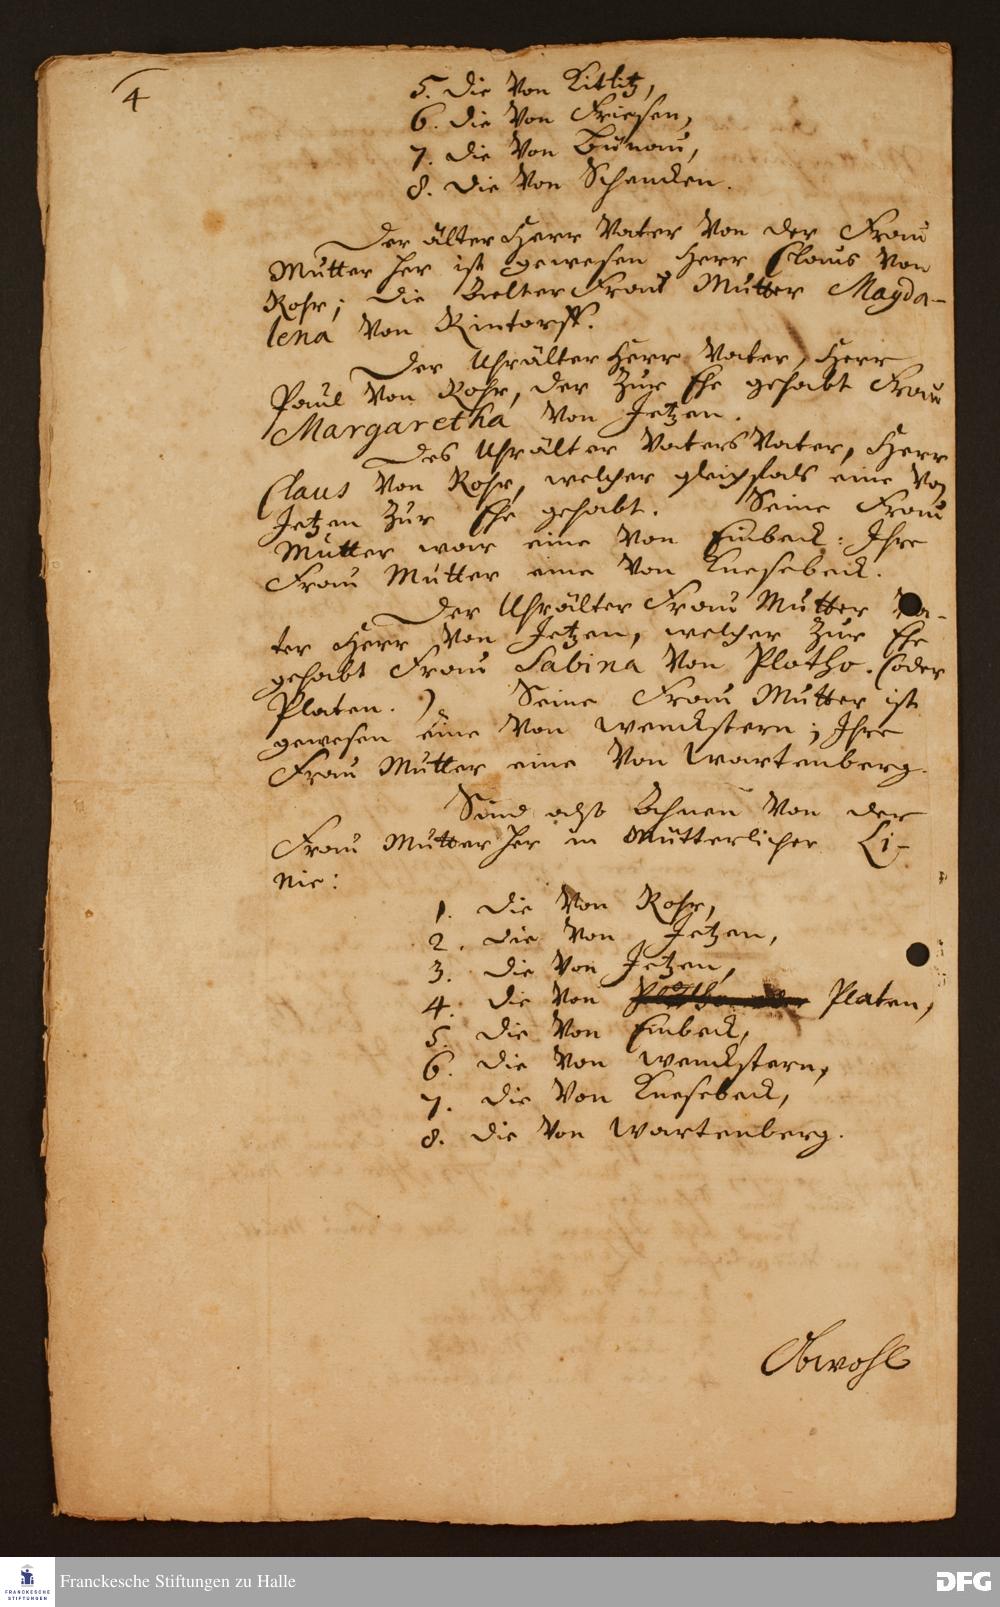 4
5. die Von Kitlitz,
6. die Von Friesen,
7. die Von Bünau,
8. die Von Schencken.
Der älter Herr Vater Von der Frau
Mutter her ist gewesen Herr Claus Von
Rohr; die Aelter Frau Mutter Magda-
lena Von Rintorff.
Der Uhrälter Herr Vater, Herr
Paul Von Rohr, der Zur Ehe gehabt Frau
Margaretha Von Jetzen.
Des Uhrälter Vaters Vater, Herr
Claus Von Rohr, welcher gleichfals eine Von
Jetzen Zur Ehe gehabt. Seine Frau
Mutter war eine Von Einbeck: Ihre
Frau Mutter eine Von Knesebeck.
Der Uhrälter Frau Mutter Va-
ter Herr Von Jetzen, welcher Zur Ehe
gehabt Frau Sabina Von Plotho. (oder
Platen.) Seine Frau Mutter ist
gewesen eine Von Wenckstern; Ihre
Frau Mutter eine Von Wartenberg.
Sind also Ahnen Von der
Frau Mutter her in Mütterlicher Li-
nie:
1. die Von Rohr,
2. die Von Jetzen,
3. die Von Jetzen,
4. die Von Platen,
5. die Von Einbeck,
6. die Von Wenckstern,
7. die Von Knesebeck,
8. die Von Wartenberg.
Obwohl
FRANCKESCHE
STIFTUNGEN
Franckesche Stiftungen zu Halle
DFG